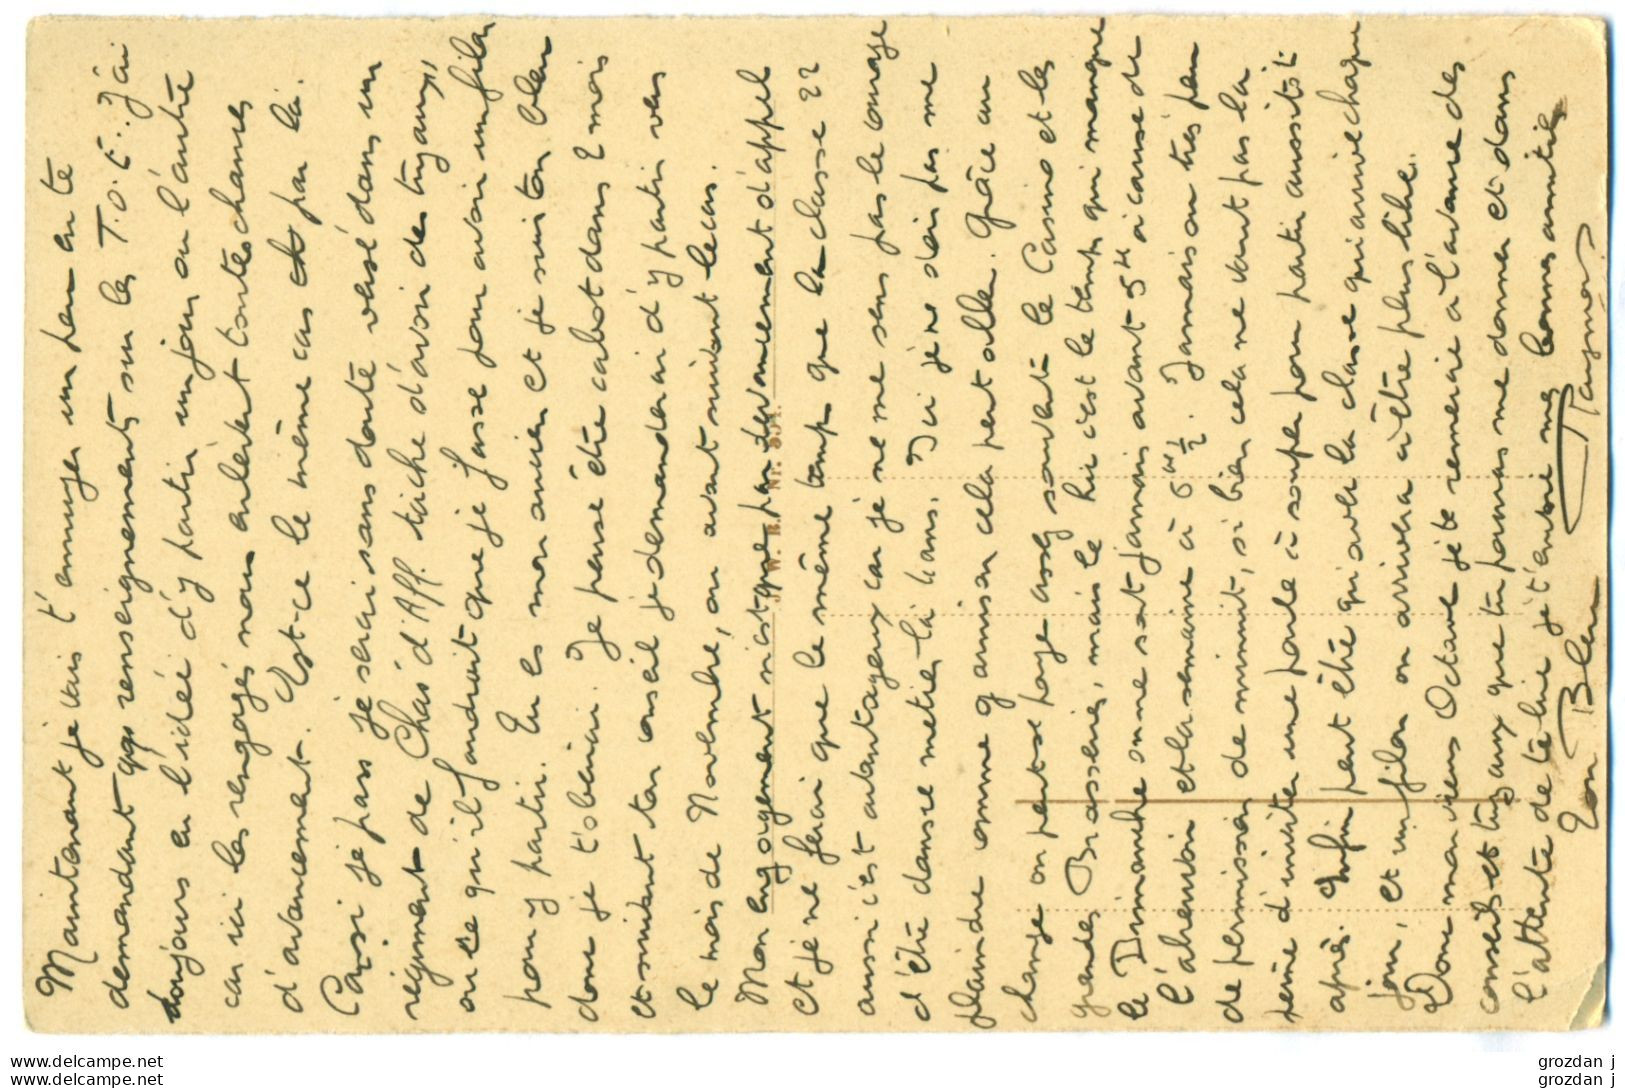 Maintenant je vais t'ennuyer un peu en te
demandant qqs renseignements sur les T.O.E.. J'ai
toujours eu l'idée d'y partir un jour ou l'autre
car ici les rengagés nous enlèvent toutes chances
d'avancement. Est-ce le même cas par là.
Car si je pars je serai sans doute versé dans un
régiment de Chas. d'Aff. tache d'avoir des tuyaux
ou ce qu'il faudrait que je fasse pour avoir un filon
pour y partir. Tu es mon ancien et je suis ton bleu
donc je t'obéirai. Je pense être cabot dans 2 mois
et suivant ton conseil je demanderai d'y partir vers
le mois de Novembre, ou avant suivant le cas.
Mon engagement n'est que par devancement d'appel
et je ne ferai que le même temps que la classe 22
aussi c'est avantageux car je ne me sens pas le courage
d'être dans ce métier là 4 ans. Ici je ne dois pas me
plaindre comme garnison cela peut aller. Grâce au
change on peut se payer assez souvent le Casino et les
grandes Brasseries, mais le hic c'est le temps qui manque
le Dimanche on ne sort jamais avant 5h à cause de
l'abreuvoir et la semaine à 6h ½. Jamais ou très peu
de permission de minuit, si bien cela ne vaut pas la
peine d'inviter une poule à souper pour partir aussitôt
après. Enfin peut être qu'avec la classe qui arrive chaque
jour, et un filon on arrivera à être plus libre.
Donc mon vieux Octave je te remercie à l'avance des
conseils et tuyaux que tu pourras me donner et dans
l'attente de te lire je t'envoie mes bonnes amitiés
Ton Bleu
J. W. B. Nr.
www.delcampe.net
www.delcampe.net
grozdan j
grozdan j